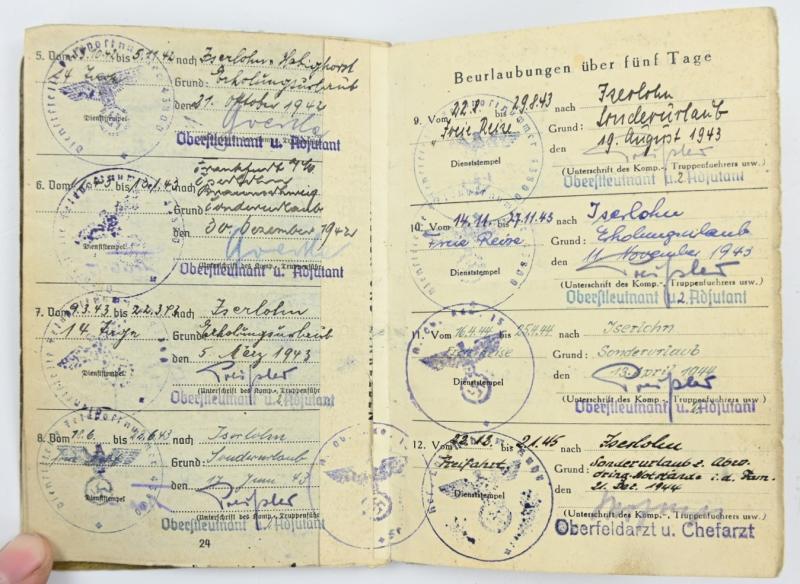 5. Vom bis 5.11.42 nach Iserlohn
Grund: Erholungsurlaub
den 31. Oktober 1942
Dienststempel
Oberstleutnant u. Adjutant
6. Vom bis nach Frankfurt
Iserlohn
Braunschweig
Grund: Sonderurlaub
den 30. Dezember 1942
Dienststempel
Oberstleutnant u. Adjutant
7. Vom 9.3.43 bis 22.3.43 nach Iserlohn
14 Tage Grund: Erholungsurlaub
den 5. März 1943
Dienststempel
(Unterschrift des Komp.-, Truppenführ
Oberstleutnant u. 2. Adjutant
8. Vom 11.6. bis 22.6.43 nach Iserlohn
Grund: Sonderurlaub
den 17 Juni 43
Dienststempel
(Unterschrift des Komp.-, Truppenführ
Oberstleutnant u. 2. Adjutant
24
Beurlaubungen über fünf Tage
9. Vom 22.8. bis 29.8.43 nach Iserlohn
"Freie Reise" Grund: Sonderurlaub
den 19. August 1943
Dienststempel
(Unterschrift des Komp.-, Truppenfuehrers usw.)
Oberstleutnant u. 2. Adjutant
10. Vom 14.11. bis 27.11.43 nach Iserlohn
Freie Reise Grund: Erholungsurlaub
den 11 November 1943
Dienststempel
(Unterschrift des Komp.-, Truppenfuehrers usw.)
Oberstleutnant u. 2. Adjutant
11. Vom 16.4.44 bis 25.4.44 nach Iserlohn
Grund: Sonderurlaub
den 13. April 1944
Dienststempel
(Unterschrift des Komp.-, Truppenfuehrers usw.)
Oberstleutnant u. 2. Adjutant
12. Vom 22.12. bis 2.1.45 nach Iserlohn
Freifahrt Grund: Sonderurlaub
i. d. Fam.
den 21. Dez. 1944
Dienststempel
(Unterschrift des Komp.-, Truppenfuehrers usw.)
Oberfeldarzt u. Chefarzt